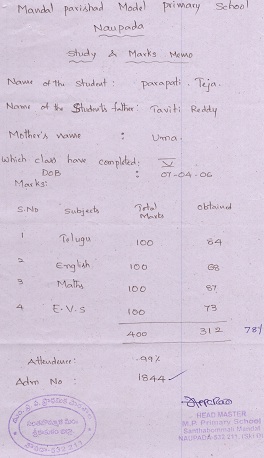 Mandal parishad Model primary School
Naupada
Study & Marks Memo
Name of the Student : parapati. Teja.
Name of the Students father: Taviti Reddy
Mother's name : Uma.
Which class have completed: V
DOB : 07-04-06
Marks:
S.NO Subjects Total Marks obtained
1 Telugu 100 84
2 English 100 68
3 Maths 100 87
4 E.V.S 100 73
400 312 78%
Attendence: 99%
Adm No : 1844
HEAD MASTER
M.P. Primary School
Santhabommali Mandal
NAUPADA-532 211